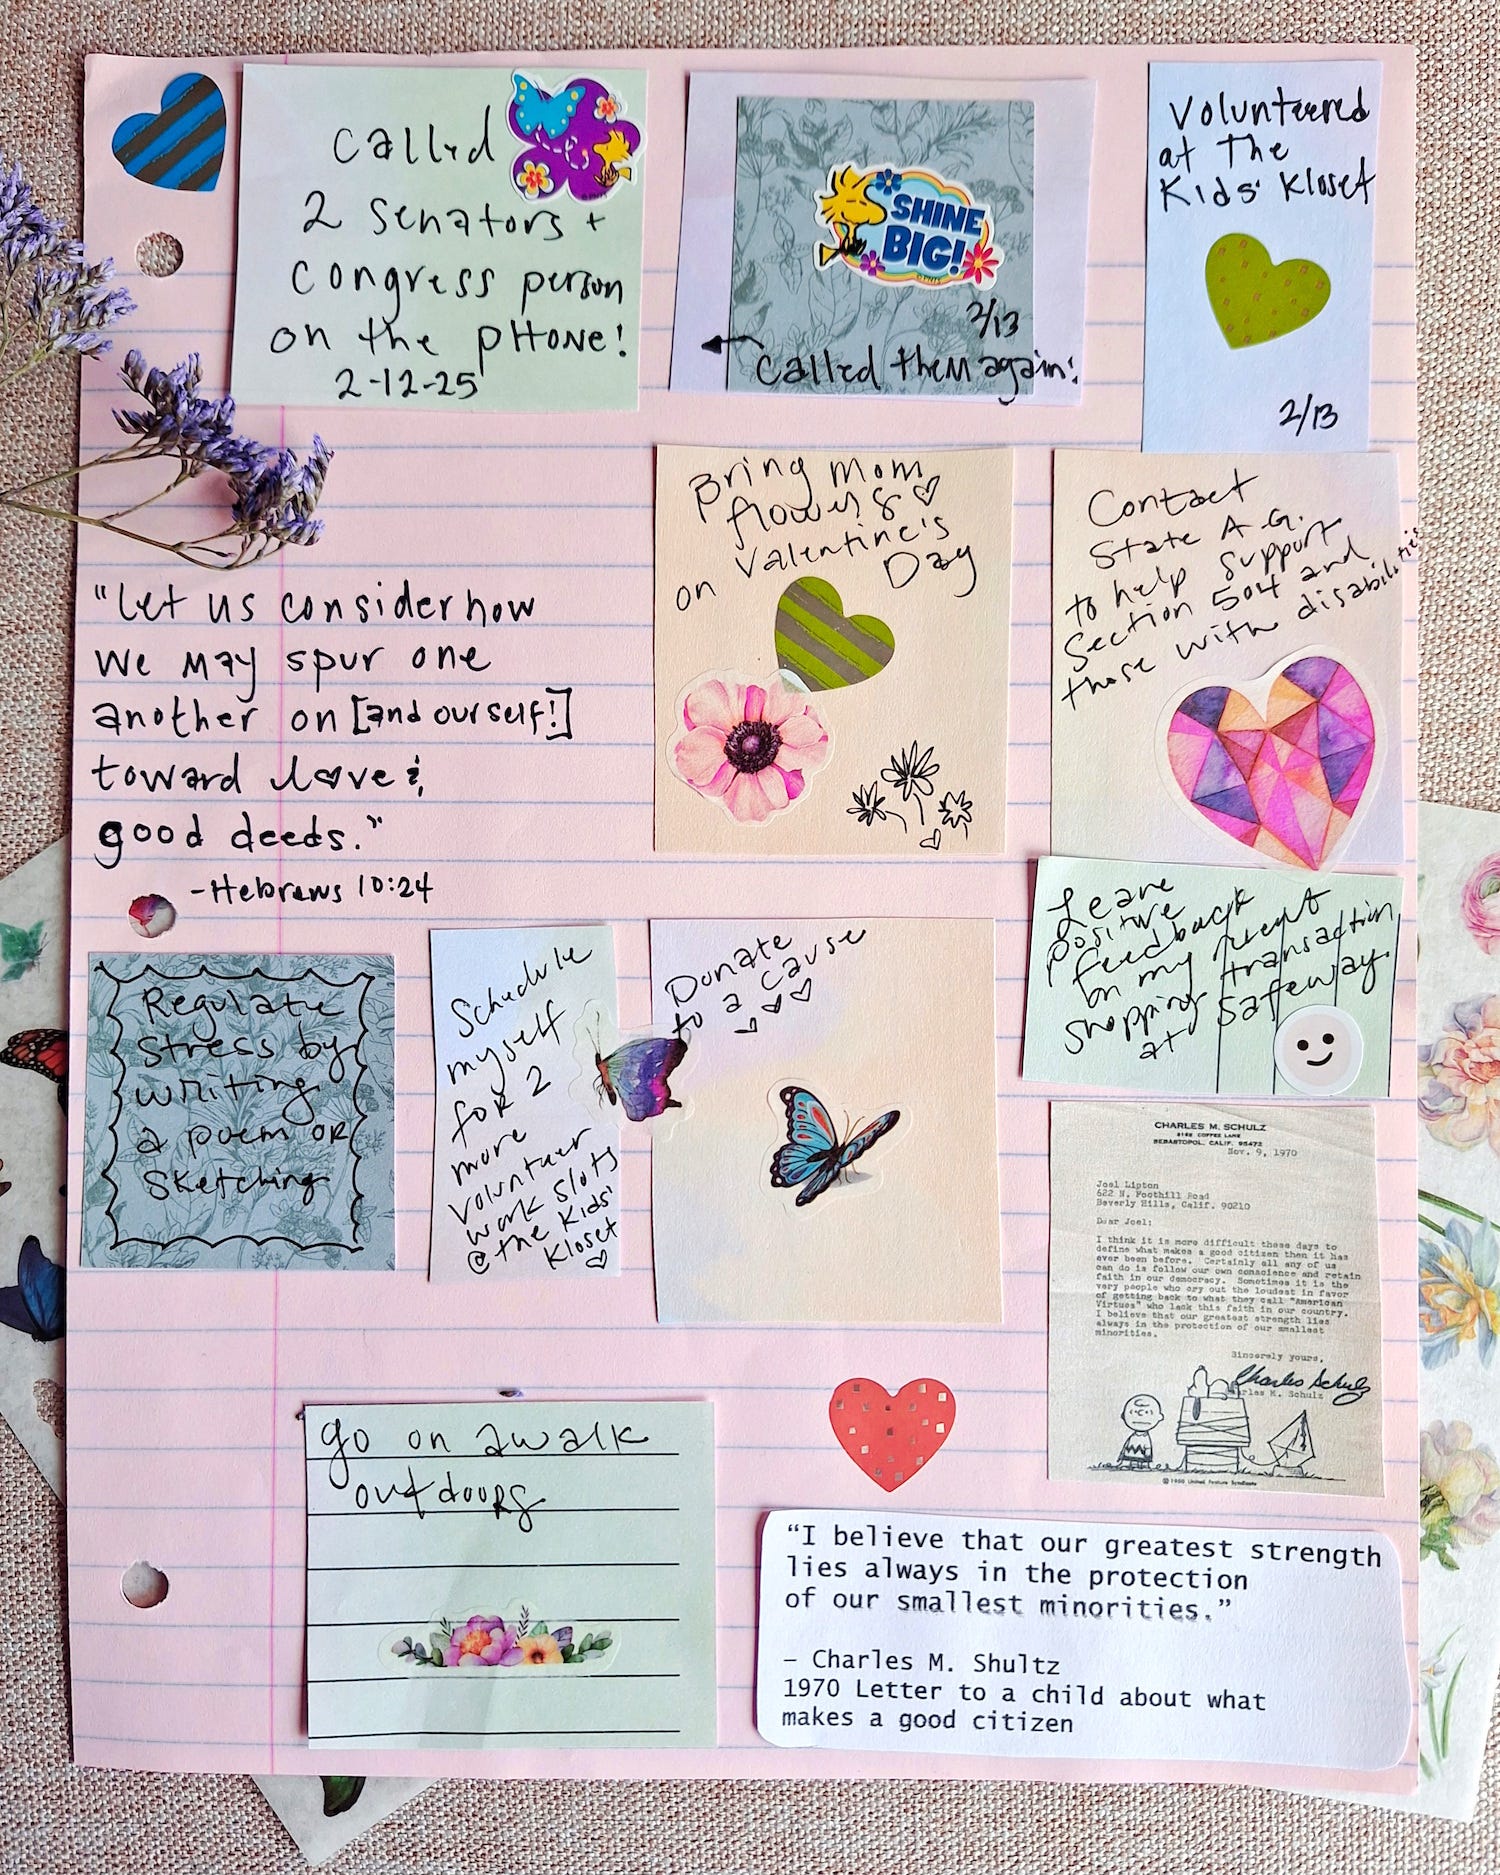 Called
2 Senators +
Congress person
on the PHONE!
2-12-25
SHINE
BIG!
2/13
Called them again!
Volunteered
at The
Kids' Kloset
2/13
Bring Mom
flowers
on Valentine's
Day
Contact
State A.G.
to help support
Section 504 and
those with disabilities
"Let us consider how
we may spur one
another on [and ourself!]
toward love &
good deeds."
-Hebrews 10:24
Leave
positive
feedback
on my recent
shopping transaction
at Safeway.
Regulate
stress by
writing
a poem or
sketching
Schedule
myself
for 2
more
volunteer
work slots
@ the Kids'
Kloset
Donate
to a cause
CHARLES M. SCHULZ
2162 COFFEE LANE
SEBASTOPOL, CALIF. 95472
Nov. 9, 1970
Joel Lipton
622 N. Foothill Road
Beverly Hills, Calif. 90210
Dear Joel:
I think it is more difficult these days to
define what makes a good citizen then it has
ever been before. Certainly all any of us
can do is follow our own conscience and retain
faith in our democracy. Sometimes it is the
very people who cry out the loudest in favor
of getting back to what they call "American
Virtues" who lack this faith in our country.
I believe that our greatest strength lies
always in the protection of our smallest
minorities.
Sincerely yours,
Charles Schulz
Charles M. Schulz
© 1950 United Feature Syndicate
go on a walk
outdoors
"I believe that our greatest strength
lies always in the protection
of our smallest minorities."
– Charles M. Shultz
1970 Letter to a child about what
makes a good citizen